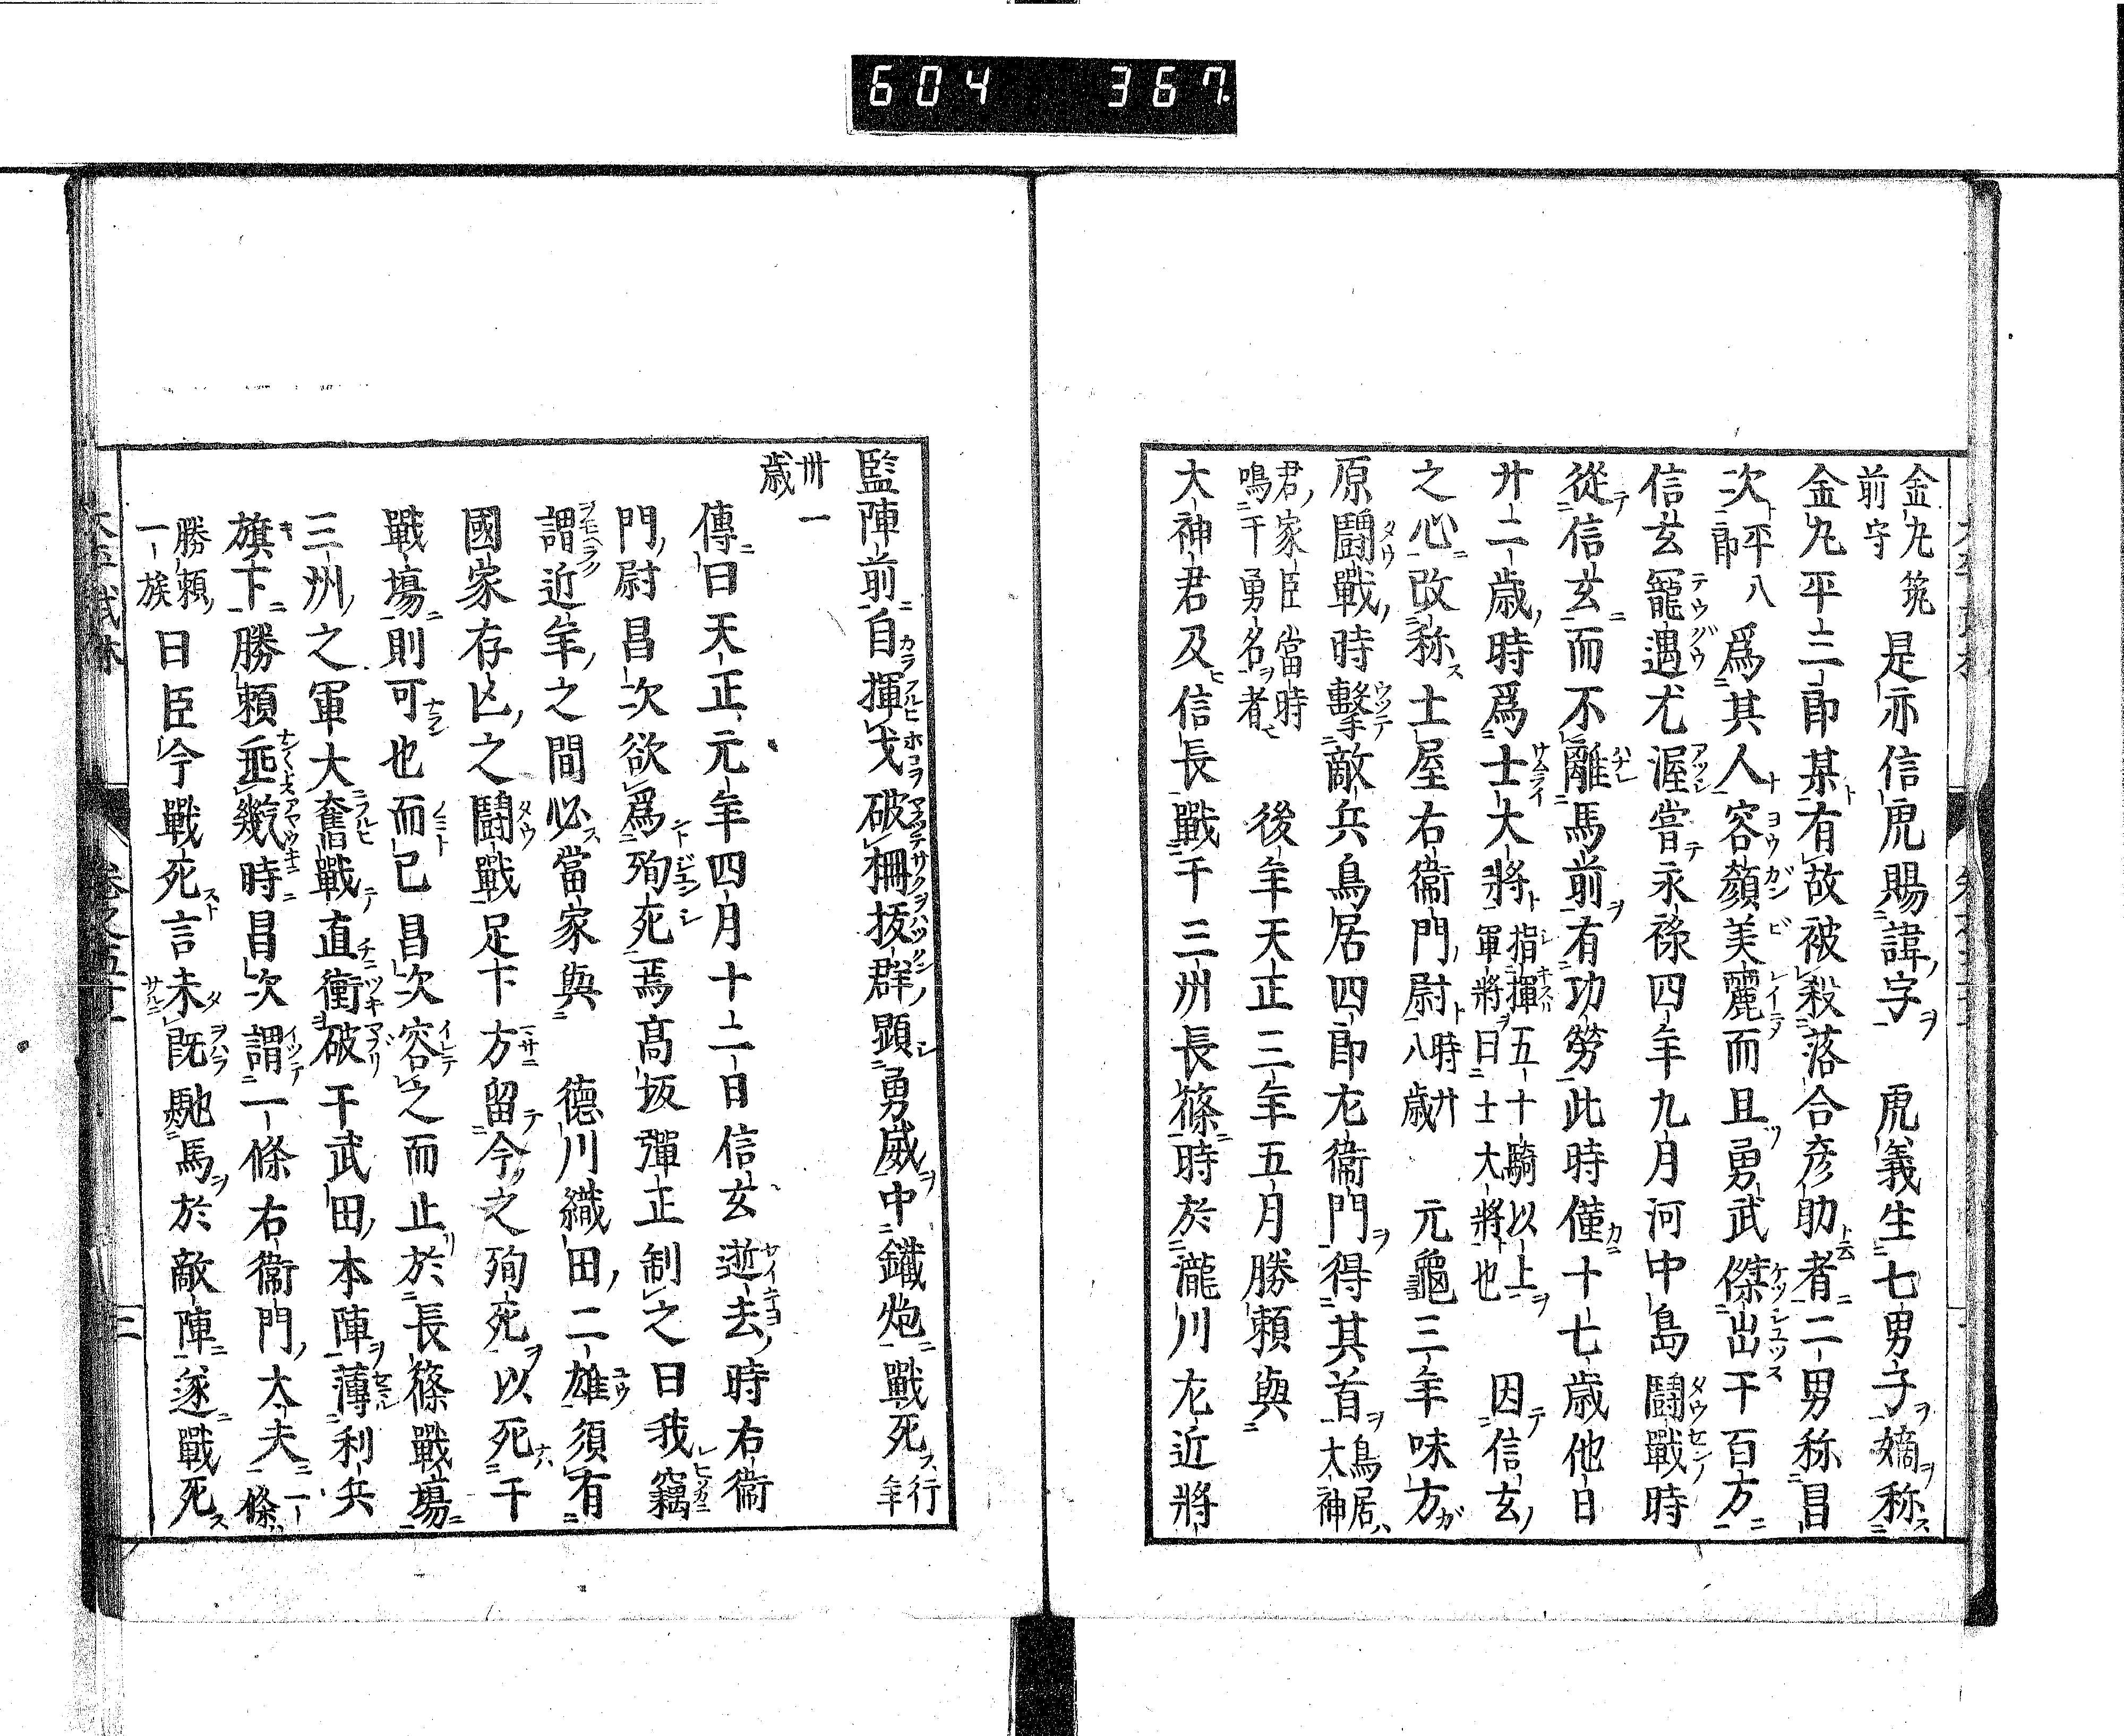 604 367
金丸筑前守 是亦信虎賜諱字 虎義生七男子嫡称
金丸平三郎某有故被殺落合彦助者二男称昌
次平八郎爲其人容顔美麗而且勇武傑出于百方
信玄寵遇尤渥嘗永禄四年九月河中島闘戰時
從信玄而不離馬前有功勞此時僅十七歳他日
廿二歳時爲士大將指揮五十騎以上軍將曰士大將也 因信玄
之心改称土屋右衞門尉時廿八歳 元龜三年味方
原闘戰時擊敵兵鳥居四郎左衞門得其首鳥居大神
君家臣當時鳴于勇名者 後年天正三年五月勝頼與
大神君及信長戰于三州長篠時於瀧川左近將
監陣前自揮戈破柵抜群顕勇威中鐵炮戰死行年
卅一歳
傳曰天正元年四月十二日信玄逝去時右衞
門尉昌次欲爲殉死焉高坂彈正制之曰我竊
謂近年之間必當家與 德川織田二雄須有
國家存亡之闘戰足下方留今之殉死以死于
戰場則可也而已昌次容之而止於長篠戰場
三州之軍大奮戰直衝破于武田本陣薄利兵
旗下勝頼垂幾時昌次謂一條右衞門大夫一條
勝頼一族曰臣今戰死言未既馳馬於敵陣遂戰死
三